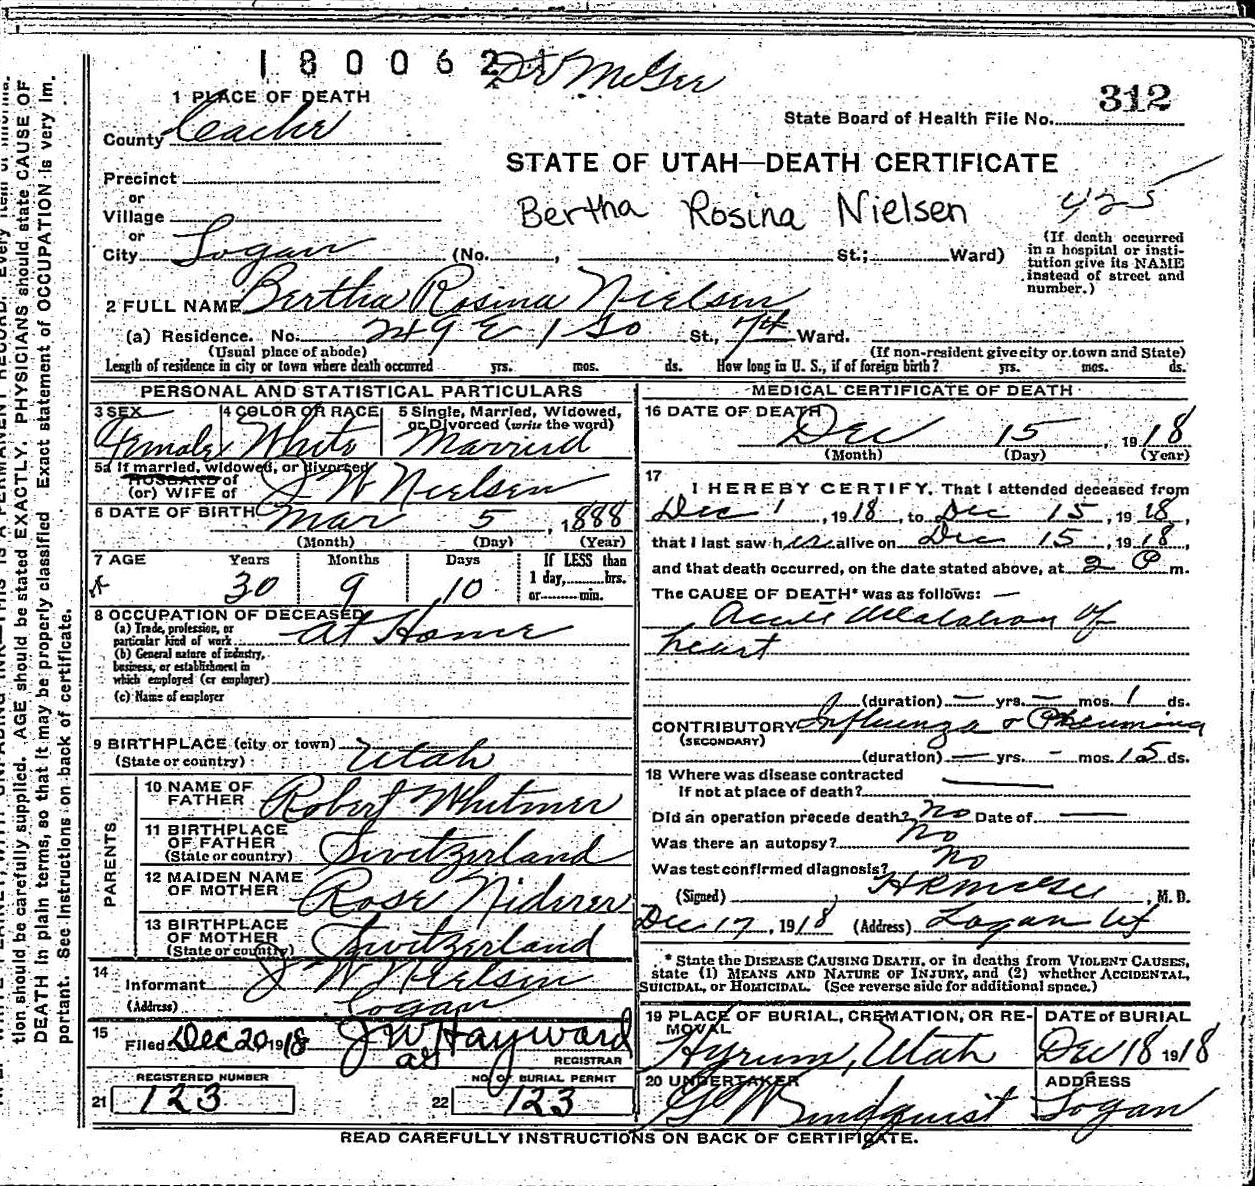 180062
Dr McGee
312
1 PLACE OF DEATH
State Board of Health File No.
County Cache
STATE OF UTAH—DEATH CERTIFICATE
Precinct
or
Village
Bertha Rosina Nielsen
425
or
City Logan (No. , St.; Ward)
(If death occurred
in a hospital or insti-
tution give its NAME
instead of street and
number.)
2 FULL NAME Bertha Rosina Nielsen
(a) Residence. No. 249 E 1 So St., 7th Ward.
(Usual place of abode) (If non-resident give city or town and State)
Length of residence in city or town where death occurred yrs. mos. ds. How long in U. S., if of foreign birth? yrs. mos. ds.
PERSONAL AND STATISTICAL PARTICULARS
3 SEX Female
4 COLOR OR RACE White
5 Single, Married, Widowed,
or Divorced (write the word)
Married
5a If married, widowed, or divorced
HUSBAND of
(or) WIFE of J W Nielsen
6 DATE OF BIRTH Mar 5, 1888
(Month) (Day) (Year)
7 AGE Years Months Days If LESS than
30 9 10 1 day, hrs.
or min.
8 OCCUPATION OF DECEASED
(a) Trade, profession, or
particular kind of work At Home
(b) General nature of industry,
business, or establishment in
which employed (or employer)
(c) Name of employer
9 BIRTHPLACE (city or town)
(State or country) Utah
PARENTS
10 NAME OF
FATHER Robert Whitmer
11 BIRTHPLACE
OF FATHER
(State or country) Switzerland
12 MAIDEN NAME
OF MOTHER Rose Niderer
13 BIRTHPLACE
OF MOTHER
(State or country) Switzerland
14
Informant J W Nielsen
(Address) Logan
15
Filed Dec 20, 1918 J W Hayward
REGISTRAR
REGISTERED NUMBER
21 123
NO. OF BURIAL PERMIT
22 123
MEDICAL CERTIFICATE OF DEATH
16 DATE OF DEATH
Dec 15, 1918
(Month) (Day) (Year)
17
I HEREBY CERTIFY, That I attended deceased from
Dec 1, 1918, to Dec 15, 1918,
that I last saw her alive on Dec 15, 1918,
and that death occurred, on the date stated above, at 2 P m.
The CAUSE OF DEATH* was as follows:
Acute dilatation of
heart
(duration) — yrs. — mos. 1 ds.
CONTRIBUTORY Influenza & Pneumonia
(SECONDARY)
(duration) — yrs. - mos. 15 ds.
18 Where was disease contracted
If not at place of death?
Did an operation precede death? No Date of
Was there an autopsy? No
Was test confirmed diagnosis? No
(Signed) H R McGee, M. D.
Dec 17, 1918 (Address) Logan Ut
* State the DISEASE CAUSING DEATH, or in deaths from VIOLENT CAUSES,
state (1) MEANS AND NATURE OF INJURY, and (2) whether ACCIDENTAL,
SUICIDAL, or HOMICIDAL. (See reverse side for additional space.)
19 PLACE OF BURIAL, CREMATION, OR RE-
MOVAL
Hyrum, Utah
DATE of BURIAL
Dec 18 1918
20 UNDERTAKER
G W Lindquist
ADDRESS
Logan
READ CAREFULLY INSTRUCTIONS ON BACK OF CERTIFICATE.
tion should be carefully supplied. AGE should be stated EXACTLY. PHYSICIANS should state CAUSE OF
DEATH in plain terms, so that it may be properly classified. Exact statement of OCCUPATION is very im-
portant. See instructions on back of certificate.